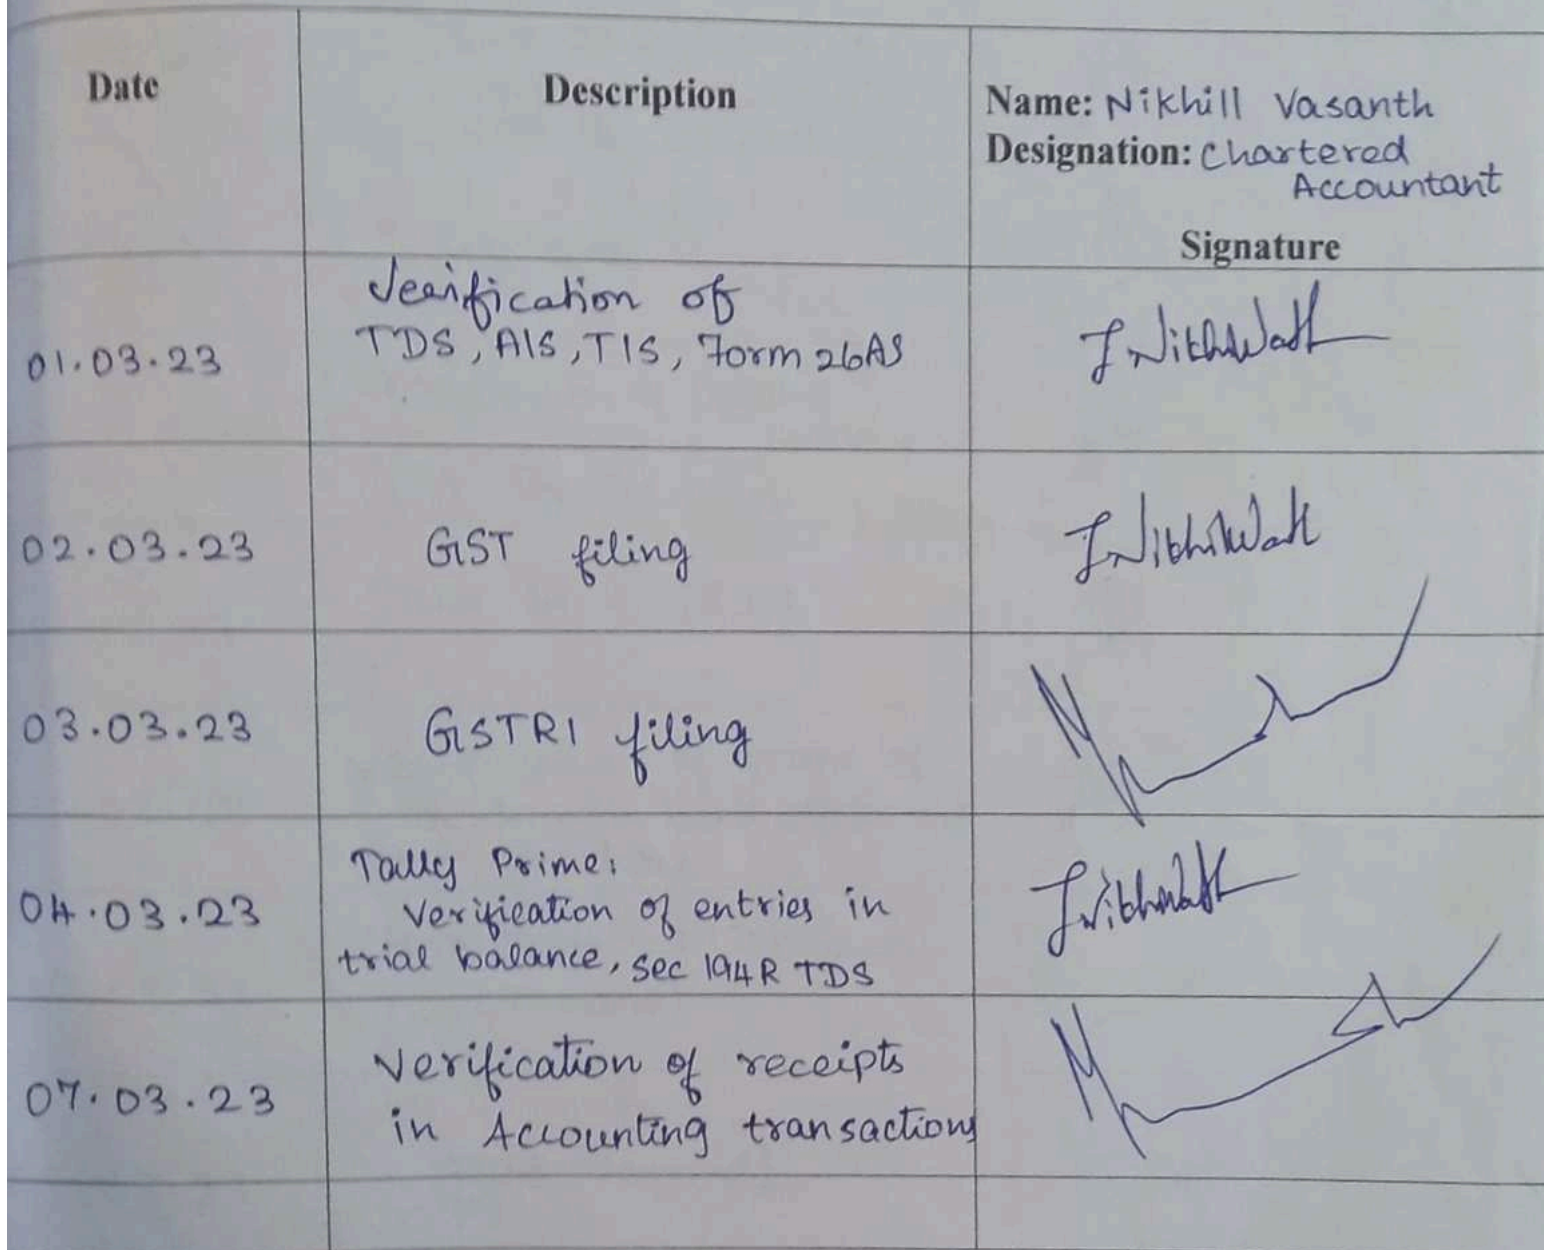 Date
Description
Name: Nikhill Vasanth
Designation: Chartered
Accountant
Signature
01.03.23
Verification of
TDS, AIS, TIS, Form 26AS
02.03.23
GST filing
03.03.23
GSTR1 filing
04.03.23
Tally Prime:
Verification of entries in
trial balance, sec 194R TDS
07.03.23
Verification of receipts
in Accounting transactions